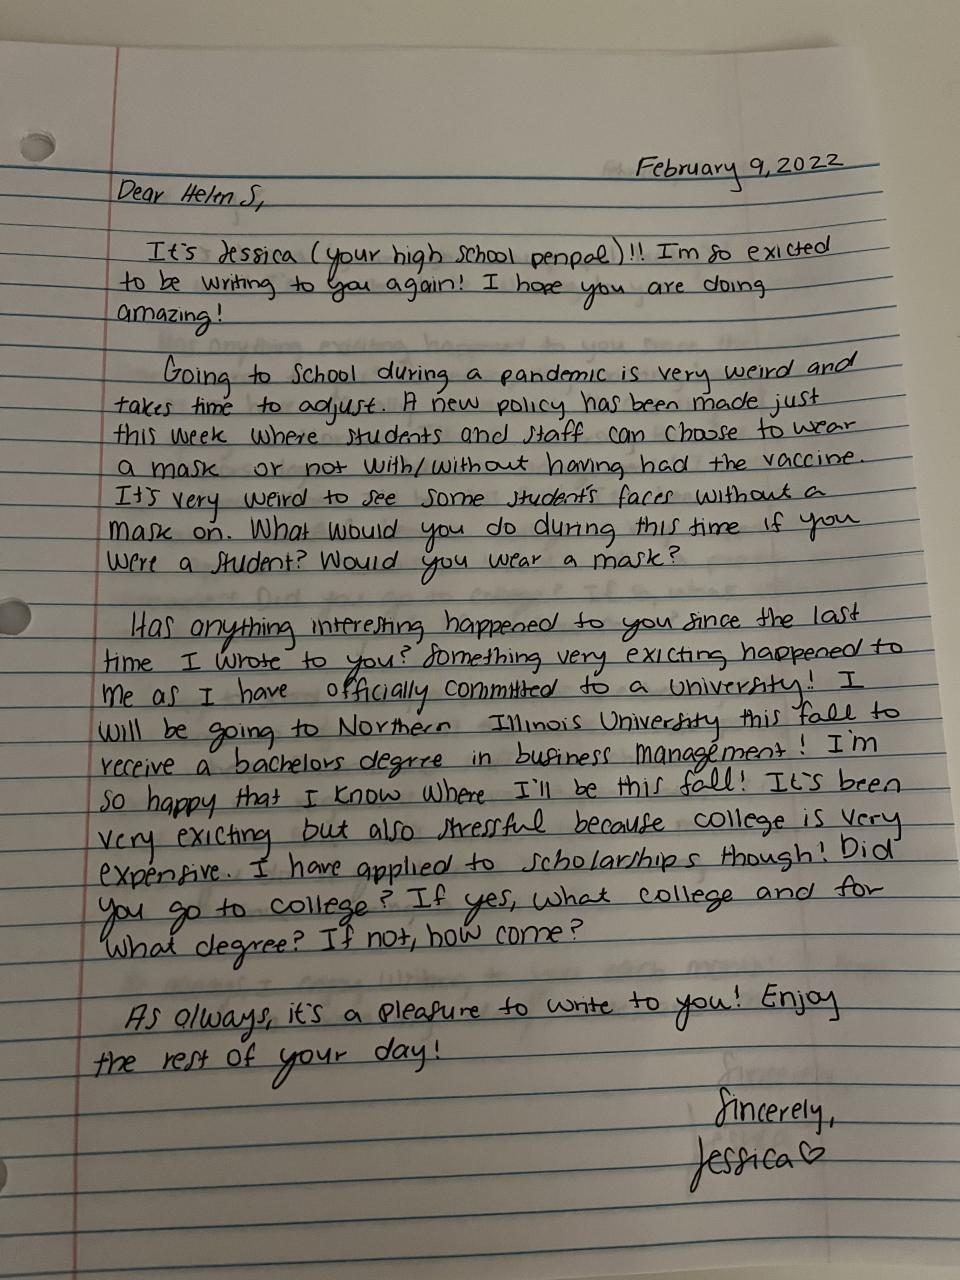 February 9, 2022
Dear Helen S,
It's Jessica (your high school penpal)!! I'm so exicted
to be writing to you again! I hope you are doing
amazing!
Going to school during a pandemic is very weird and
takes time to adjust. A new policy has been made just
this week where students and staff can choose to wear
a mask or not with/without having had the vaccine.
It's very weird to see some student's faces without a
mask on. What would you do during this time if you
were a student? Would you wear a mask?
Has anything interesting happened to you since the last
time I wrote to you? Something very exicting happened to
me as I have officially committed to a university! I
will be going to Northern Illinois University this fall to
receive a bachelors degree in business management! I'm
so happy that I know where I'll be this fall! It's been
very exicting but also stressful because college is very
expensive. I have applied to scholarships though! Did
you go to college? If yes, what college and for
what degree? If not, how come?
As always, it's a pleasure to write to you! Enjoy
the rest of your day!
Sincerely,
Jessica♡